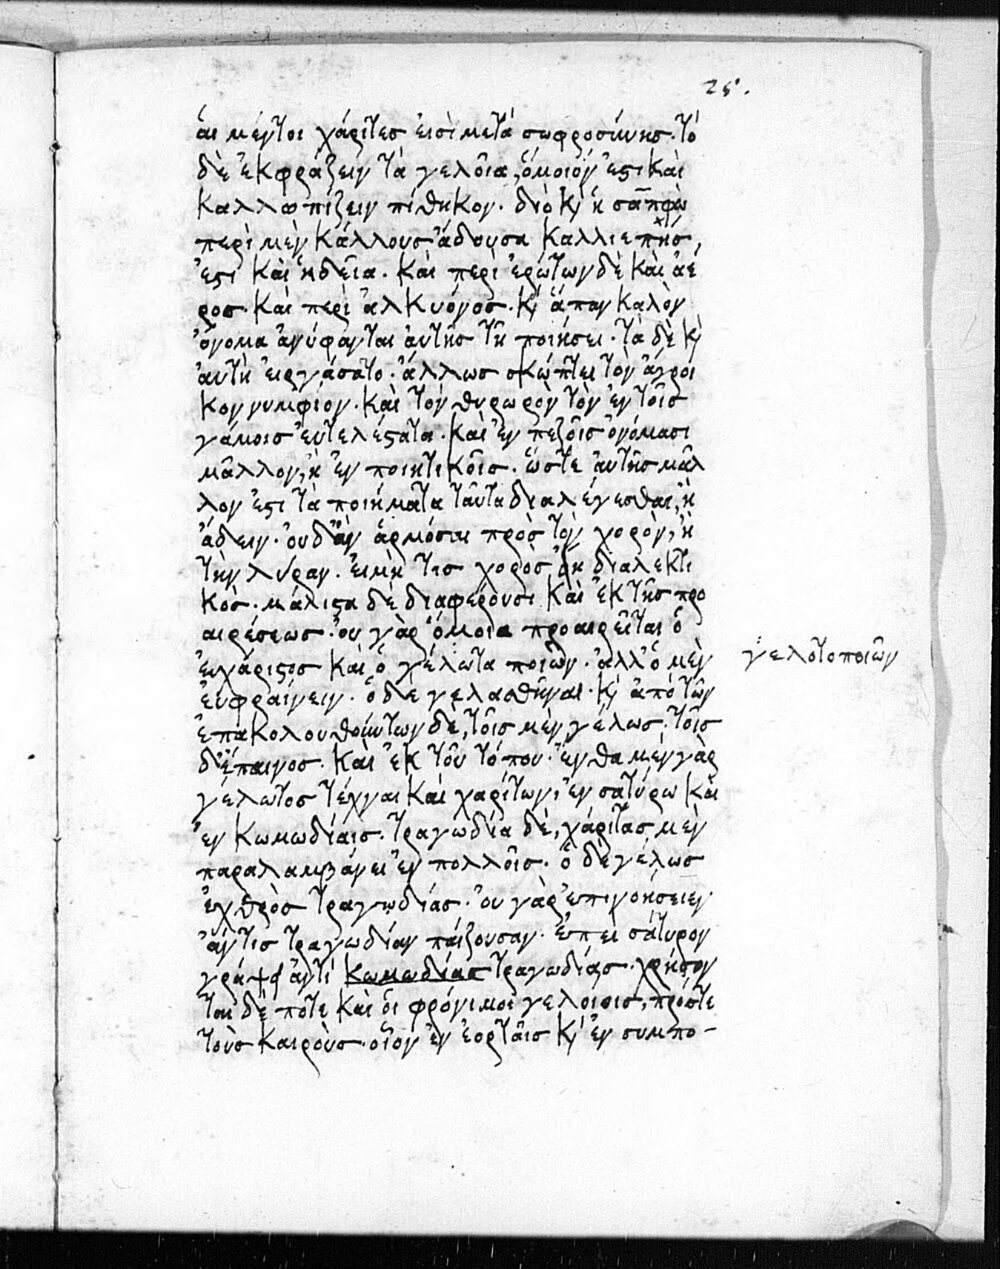 25.
ἁι μέντοι χάριτες ἐισὶ μετὰ σωφροσύνης· τὸ
δὲ ἐκφράζειν τὰ γελοῖα, ὅμοιόν ἐστι καὶ
καλλωπίζειν πίθηκον· διὸ κỳ ἡ σαπφὼ
περὶ μὲν κάλλους ἄδουσα καλλιεπὴς,
ἐστὶ καὶ ἡδεῖα· καὶ περὶ ἐρώτων δὲ καὶ ἀέ
ρος· καὶ περὶ ἁλκυόνος· κỳ ἅπαν καλὸν
ὄνομα ἀνύφανται ἀυτῆς τῇ ποιήσει· τὰ δὲ κỳ
ἀυτὴ ἐιργάσατο· ἄλλως σκώπτει τὸν ἄγροι
κον νυμφίον· καὶ τὸν θυρωρὸν τὸν ἐν τοῖς
γάμοις ἐυτελέστατα· καὶ ἐν πεζοῖς ὀνόμασι
μᾶλλον, ἢ ἐν ποιητικοῖς· ὥστε ἀυτῆς μᾶλ
λον ἐστὶ τὰ ποιήματα ταῦτα διαλέγεσθαι, ἢ
ἄδειν· ὀυδ' ἂν ἁρμόσαι πρὸς τὸν χορὸν, ἢ
τὴν λύραν· ἐιμὴ τις χορὸς ἔιη διαλεκτι
κός· μάλιστα δὲ διαφέρουσι καὶ ἐκ τῆς προ
αιρέσεως· ὀυ γὰρ ὅμοια προαιρεῖται ὁ
ἐυχάριστος καὶ ὁ γέλωτα ποιῶν· ἀλλ' ὁ μὲν
γελοτοποιῶν
ἐυφραίνειν· ὁ δὲ γελασθῆναι· κỳ ἀπὸ τῶν
ἐπακολουθούντων δὲ, τοῖς μὲν γέλως· τοῖς
δ' ἔπαινος· καὶ ἐκ τοῦ τόπου· ἔνθα μὲν γὰρ
γέλωτος τέχναι καὶ χαρίτων, ἐν σατύρω καὶ
ἐν κωμωδίαις· τραγωδία δὲ, χάριτας μὲν
παραλαμβάνει ἐν πολλοῖς· ὁ δὲ γέλως
ἐχθρὸς τραγωδίας· ὀυ γὰρ ἐπινοήσειεν
ἄν τις τραγωδίαν παίζουσαν· ἐπεὶ σάτυρον
γράψει ἀντὶ κωμωδίας τραγωδίας· χρήσον
ται δέ ποτε καὶ ὁι φρόνιμοι γελοίοις, πρός τε
τοὺς καιροὺς· οἷον ἐν ἑορταῖς κỳ ἐν συμπο-